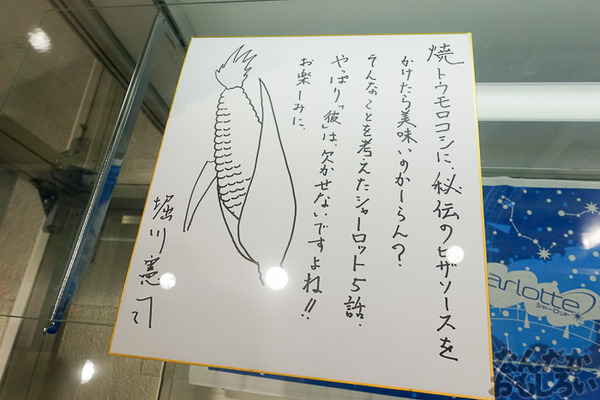 焼トウモロコシに、秘伝のピザソースを
かけたら美味いのかーらん?
そんなことを考えたシャーロット5話.
やっぱり「彼」は、欠かせないですよね!!
お楽しみに、
堀川憲司
arlotte
シャーロット
なんだか
おもしろい